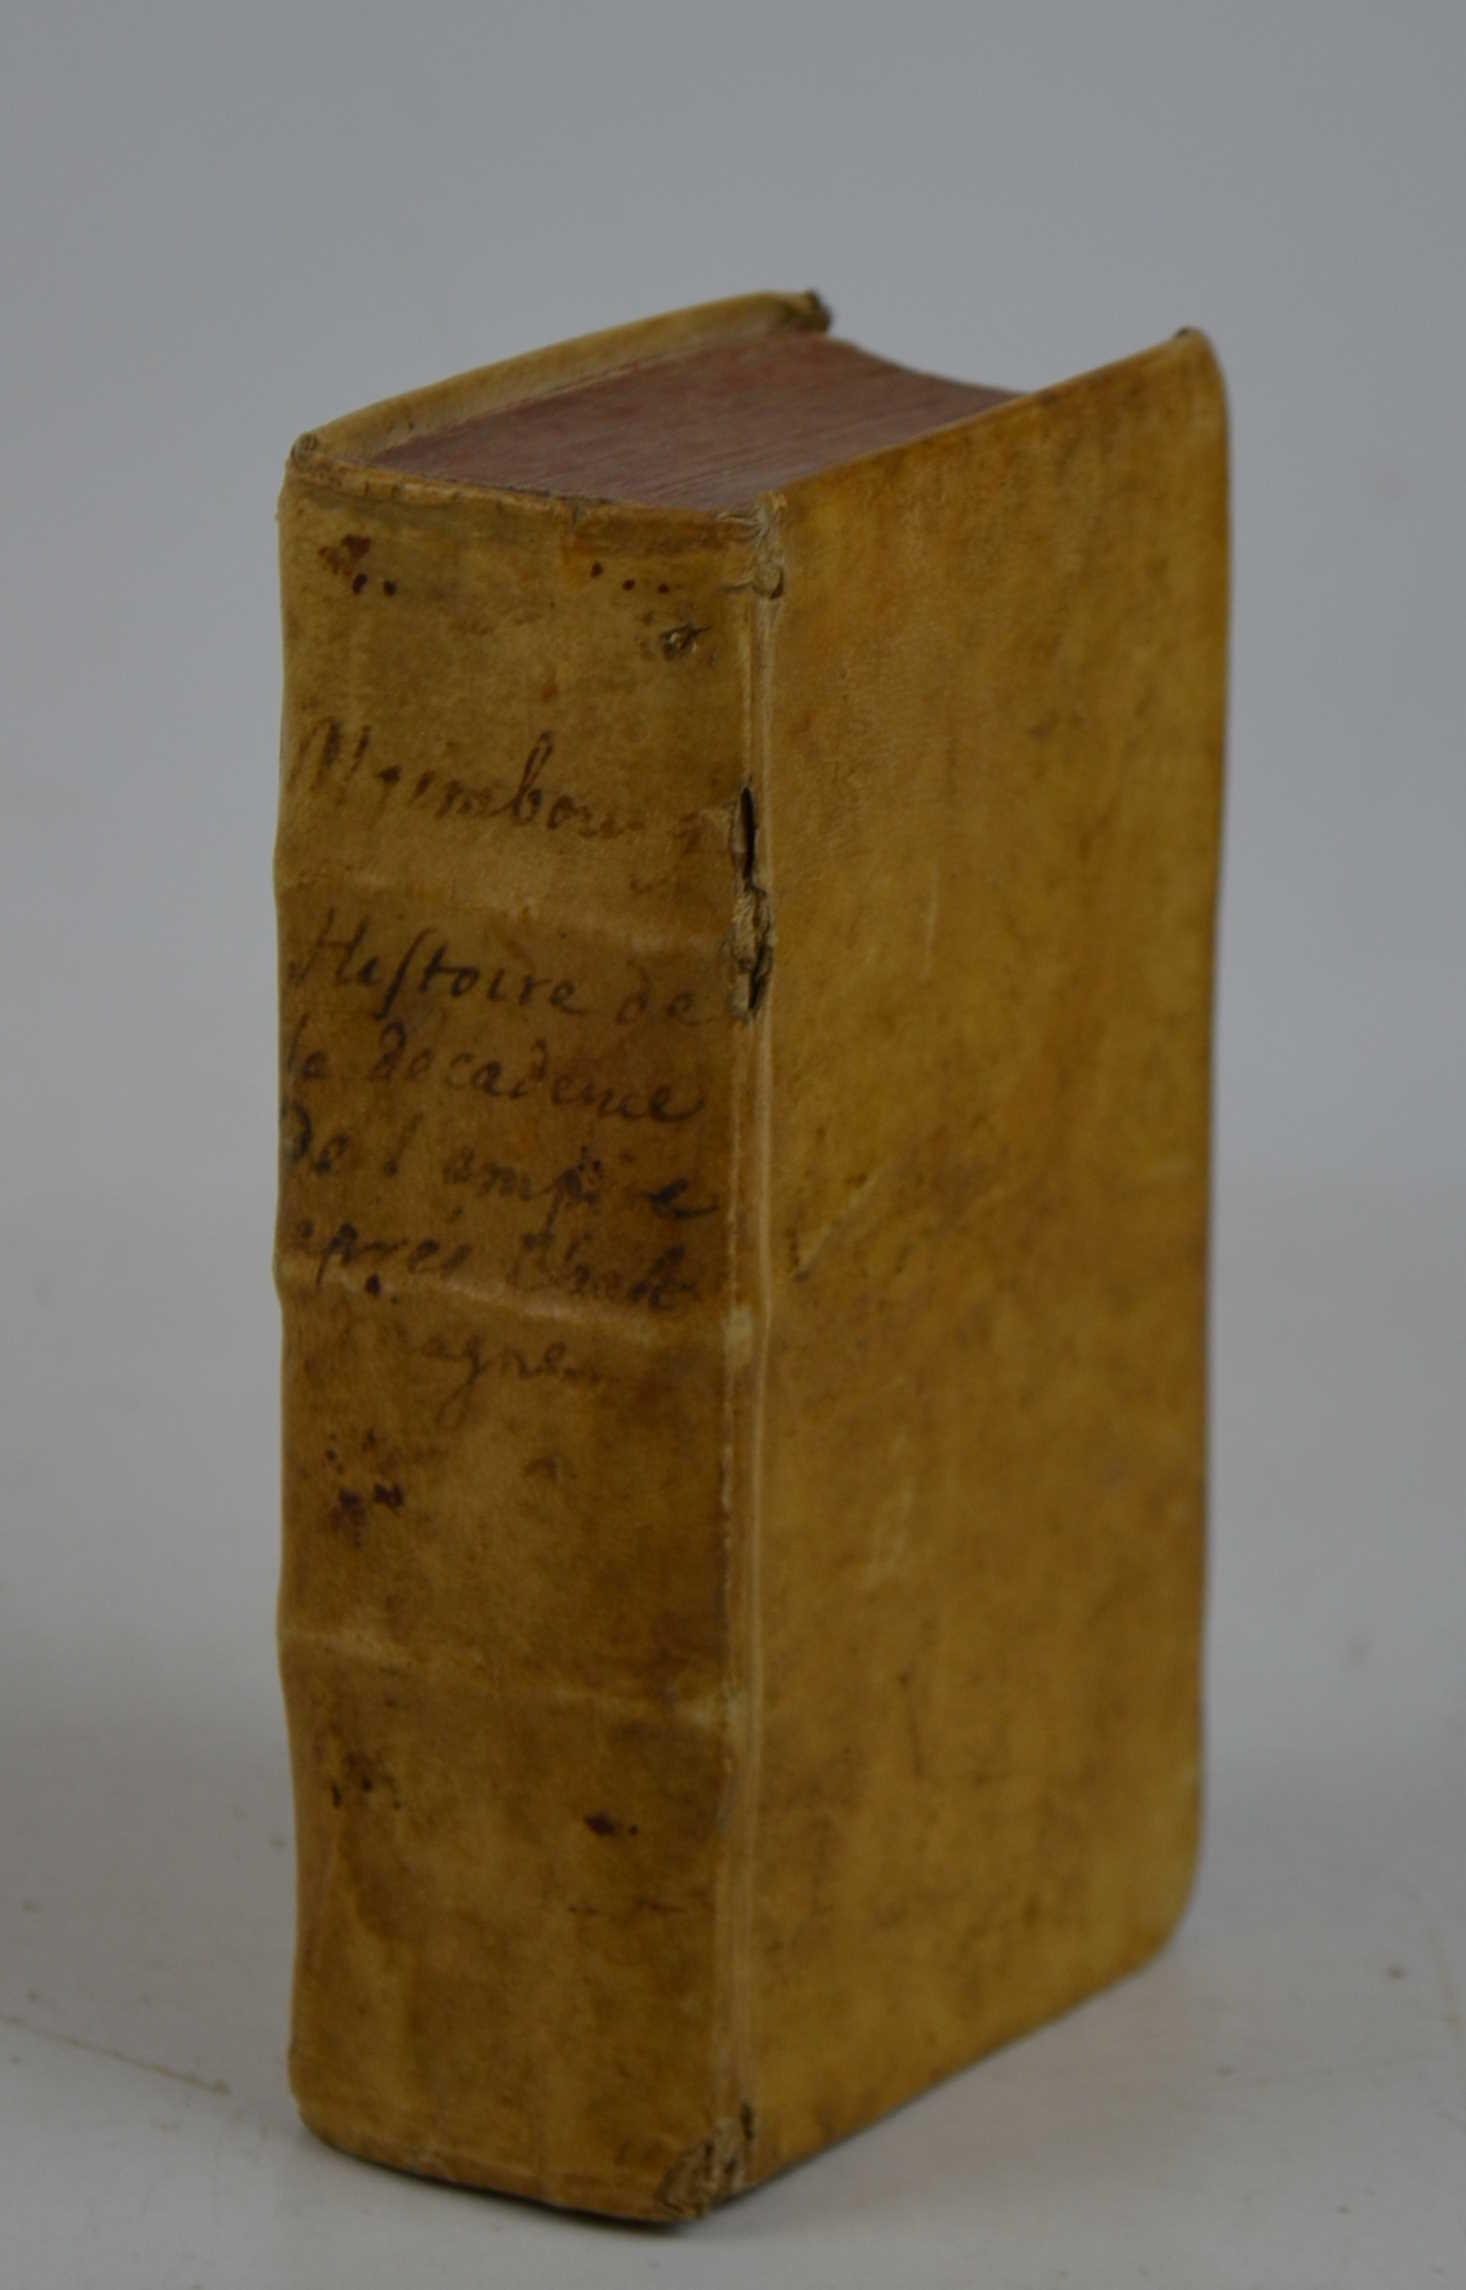 Maimbourg
Hiſtoire de
la decadence
de l'empire
aprés Charle
magne